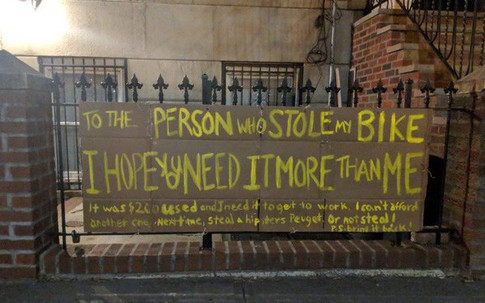 TO THE PERSON WHO STOLE my BIKE
I HOPE YOU NEED IT MORE THAN ME
It was $200 used and I need it to get to work. I can't afford
another one. Next time, steal a hipsters Peuget. Or not steal!
P.S. bring it back!